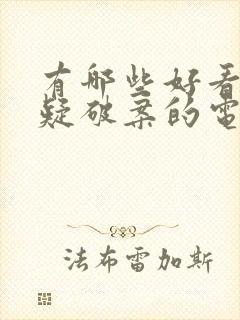 有哪些好看
疑破案的電
法布雷加斯